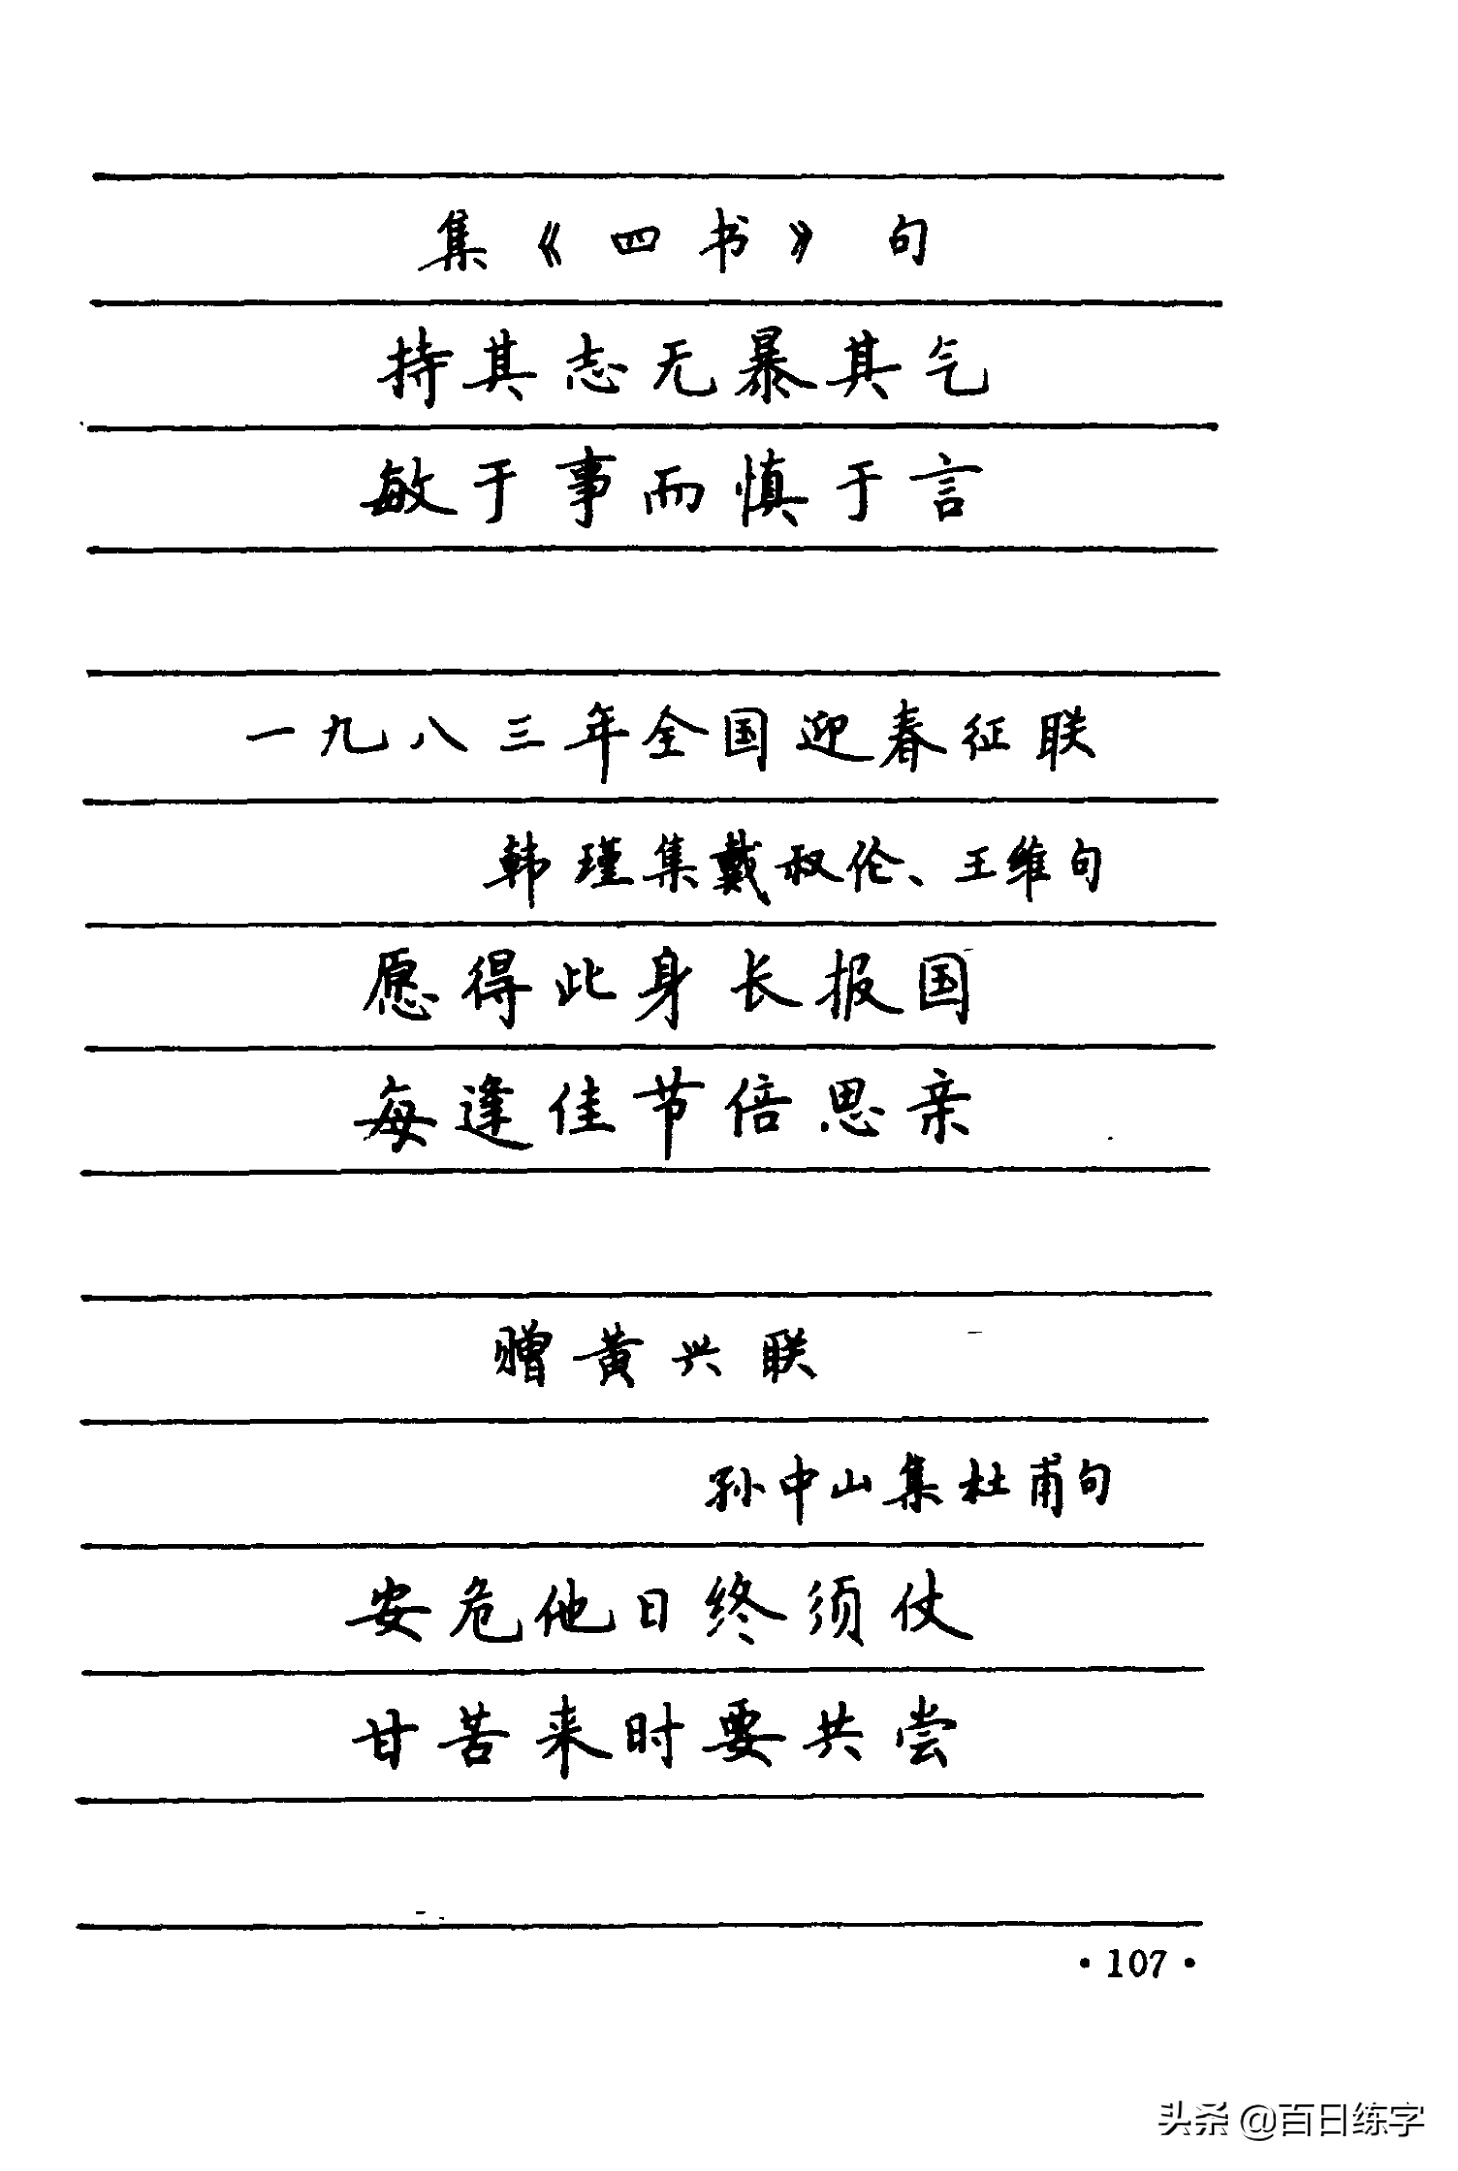 集《四书》句
持其志无暴其气
敏于事而慎于言
一九八三年全国迎春征联
韩瑾集戴叔伦、王维句
愿得此身长报国
每逢佳节倍思亲
赠黄兴联
孙中山集杜甫句
安危他日终须仗
甘苦来时要共尝
·107·
头条 @百日练字